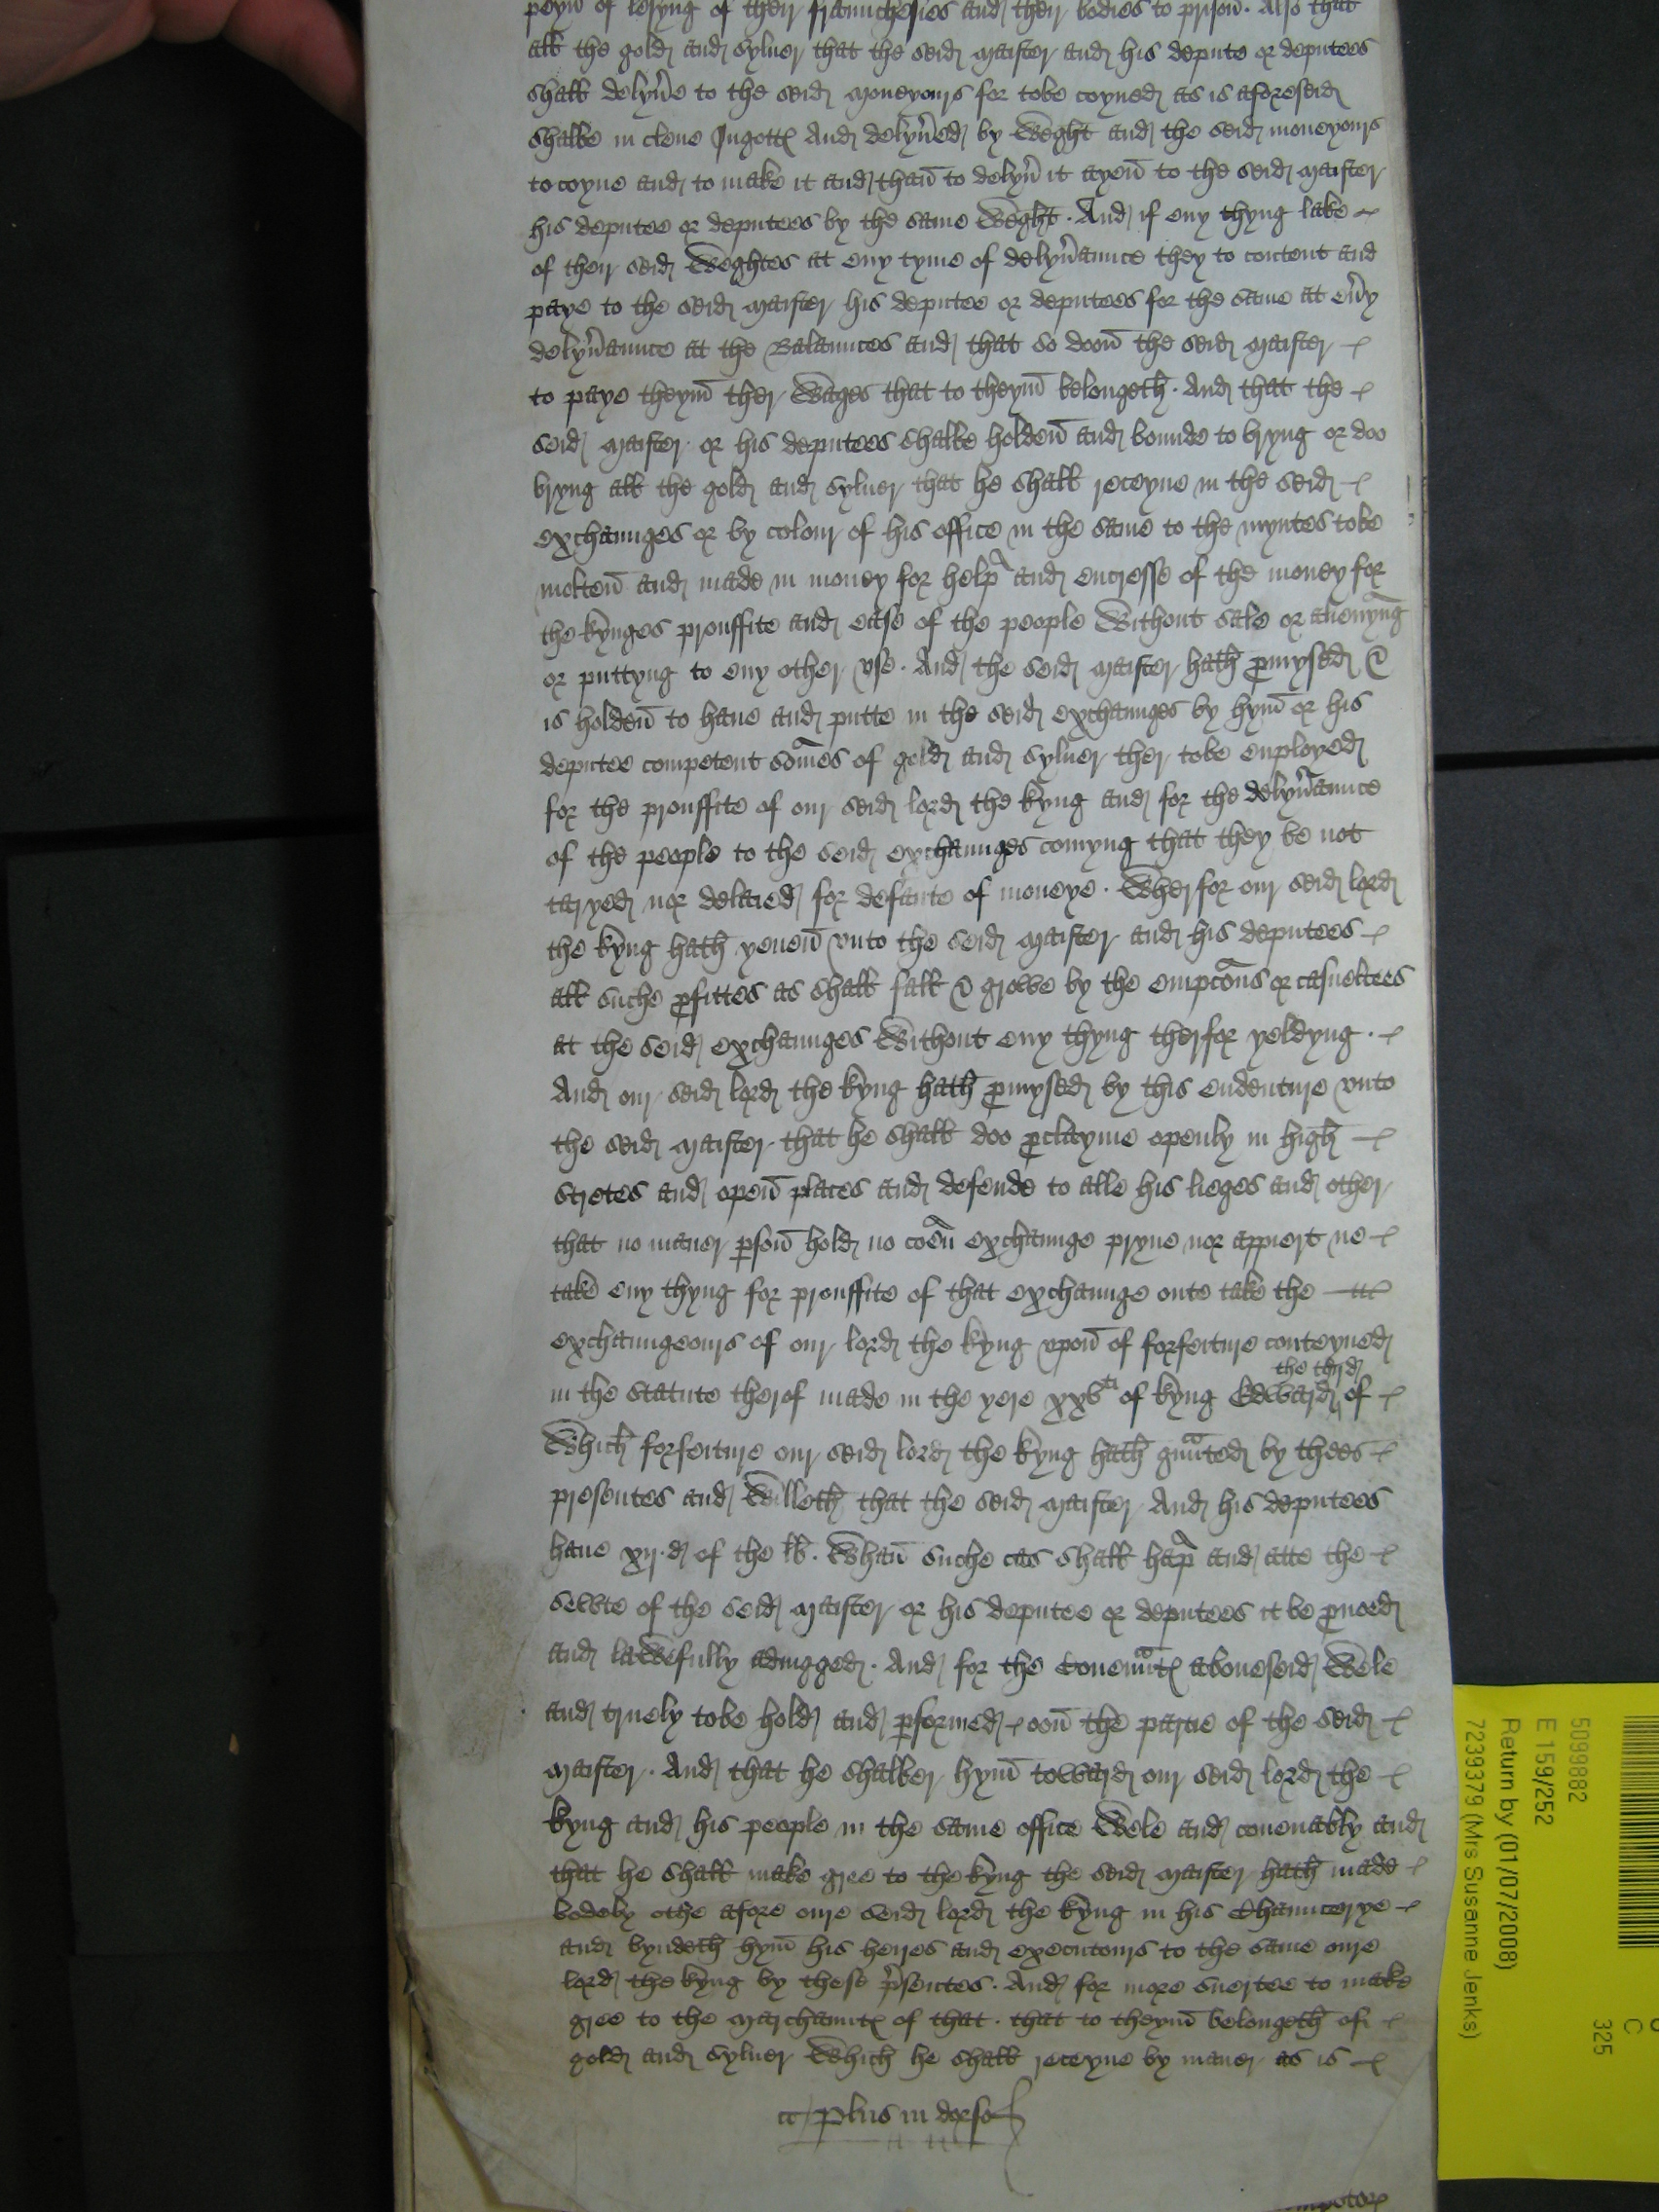 peyn of lesyng of their Fraunchesies and their bodies to prison. Also that
all the gold and sylver that the seid maister and his depute or deputees
shall delyv'e to the seid moneyours for tobe coyned as is aforeseid
shalbe in clene Ingott And delyv'ed by Weght and the seid moneyours
to coyne and to make it and than to delyv' it ayen to the seid maister
his deputee or deputees by the same Weght. And if eny thyng lake
of their seid Weghtes at eny tyme of delyv'aunce they to content and
paye to the seid maister his deputee or deputees for the same at ev'y
delyv'aunce at the Balaunces and that so doon the seid maister
to paye theym ther Wages that to theym belongeth. And that the
seid maister or his deputees shalbe holden and bounde to bryng or doo
bryng all the gold and sylver that he shall receyue in the seid
exchaunges or by colour of his office in the same to the myntes tobe
molten and made in money for help and encresse of the money for
the kynges prouffite and ease of the people Without sale or alienyng
or puttyng to eny other vse. And the seid maister hath pmysed &
is holden to haue and putte in the seid exchaunges by hym or his
deputee competent somes of gold and sylver ther tobe employed
for the prouffite of our seid lord the kyng and for the delyv'aunce
of the people to the seid exchaunges comyng that they be not
taryed nor delaied for defaute of moneye. Wherfor our seid lord
the kyng hath yeuen vnto the seid maister and his deputees
all suche pfittes as shall fall & growe by the empcons or casueltees
at the seid exchaunges Without eny thyng therfor yeldyng.
And our seid lord the kyng hath pmysed by this endenture vnto
the seid maister that he shall doo pclayme openly in high
stretes and open places and defende to alle his lieges and other
that no maner pson hold no coen exchaunge pryue nor appert ne
take eny thyng for prouffite of that exchaunge oute take the
exchaungeours of our lord the kyng vpon of forfeiture conteyned
the third
in the statute therof made in the yere xxvti of kyng Edward of
Which forfeiture our seid lord the kyng hath gunted by thees
presentes and Willeth that the seid maister And his deputees
haue xij.d of the lb. Whan suche cas shall hap and atte the
sewte of the seid maister or his deputee or deputees it be pued
and laWefully adiugged. And for the Couenunt aboueseid Wele
and truely tobe hold and pformed oon the partie of the seid
maister. And that he shalber hym toward our seid lord the
kyng and his people in the same office Wele and couenably and
that he shall make gree to the kyng the seid maister hath made
bodely othe afore oure seid lord the kyng in his Chauncerye
and byndeth hym his heires and executours to the same oure
lord the kyng by these p'sentes. And for more suertee to make
gree to the marchaunt of that. that to theym belongeth of
gold and sylver Which he shall receyue by maner as is
plus in dorso
5099882
E 159/252
Return by (01/07/2008)
7239379 (Mrs Susanne Jenks)
C
325